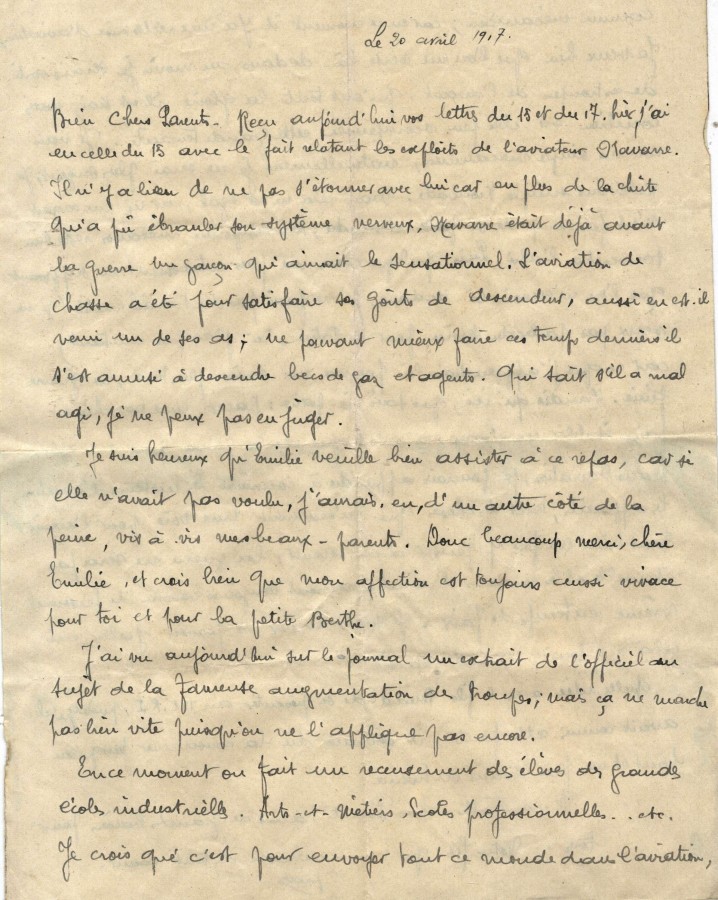 Le 20 avril 1917.
Bien Chers Parents - Reçu aujourd'hui vos lettres du 15 et du 17. hier, j'ai
eu celle du 15 avec le fait relatant les exploits de l'aviateur Navarre.
Il n'y a lieu de ne pas s'étonner avec lui car en plus de la chute
qui a pû ébranler son système nerveux, Navarre était déjà avant
la guerre un garçon qui aimait le sensationnel. L'aviation de
chasse a été pour satisfaire ses goûts de descendeur, aussi en est-il
venu un de ses as ; ne pouvant mieux faire ces temps derniers il
s'est amusé à descendre becs de gaz et agents. Qui sait s'il a mal
agi, je ne peux pas en juger.
Je suis heureux qu'Emilie veuille bien assister à ce repas, car si
elle n'avait pas voulu, j'aurais eu, d'un autre côté de la
peine, vis à vis mes beaux-parents. Donc beaucoup merci, chère
Emilie, et crois bien que mon affection est toujours aussi vivace
pour toi et pour la petite Berthe.
J'ai vu aujourd'hui sur le journal un extrait de l'officiel au
sujet de la fameuse augmentation des troupes ; mais ça ne marche
pas bien vite puisqu'on ne l'applique pas encore.
En ce moment on fait un recensement des élèves des grandes
écoles industrielles. Arts-et-Métiers, Ecoles professionnelles.. etc.
Je crois que c'est pour envoyer tout ce monde dans l'aviation,